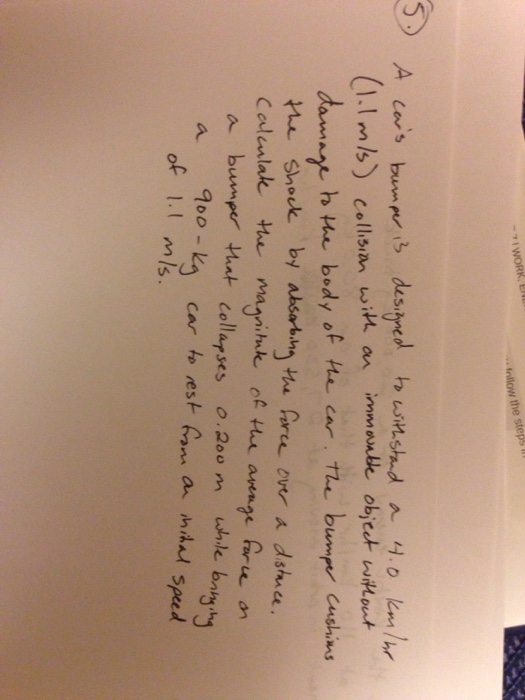 5. A car's bumper is designed to withstand a 4.0 km/hr
(1.1 m/s) collision with an immovable object without
damage to the body of the car. The bumper cushions
the shock by absorbing the force over a distance.
Calculate the magnitude of the average force on
a bumper that collapses 0.200 m while bringing
a 900-kg car to rest from an initial speed
of 1.1 m/s.
WORK
follow the steps